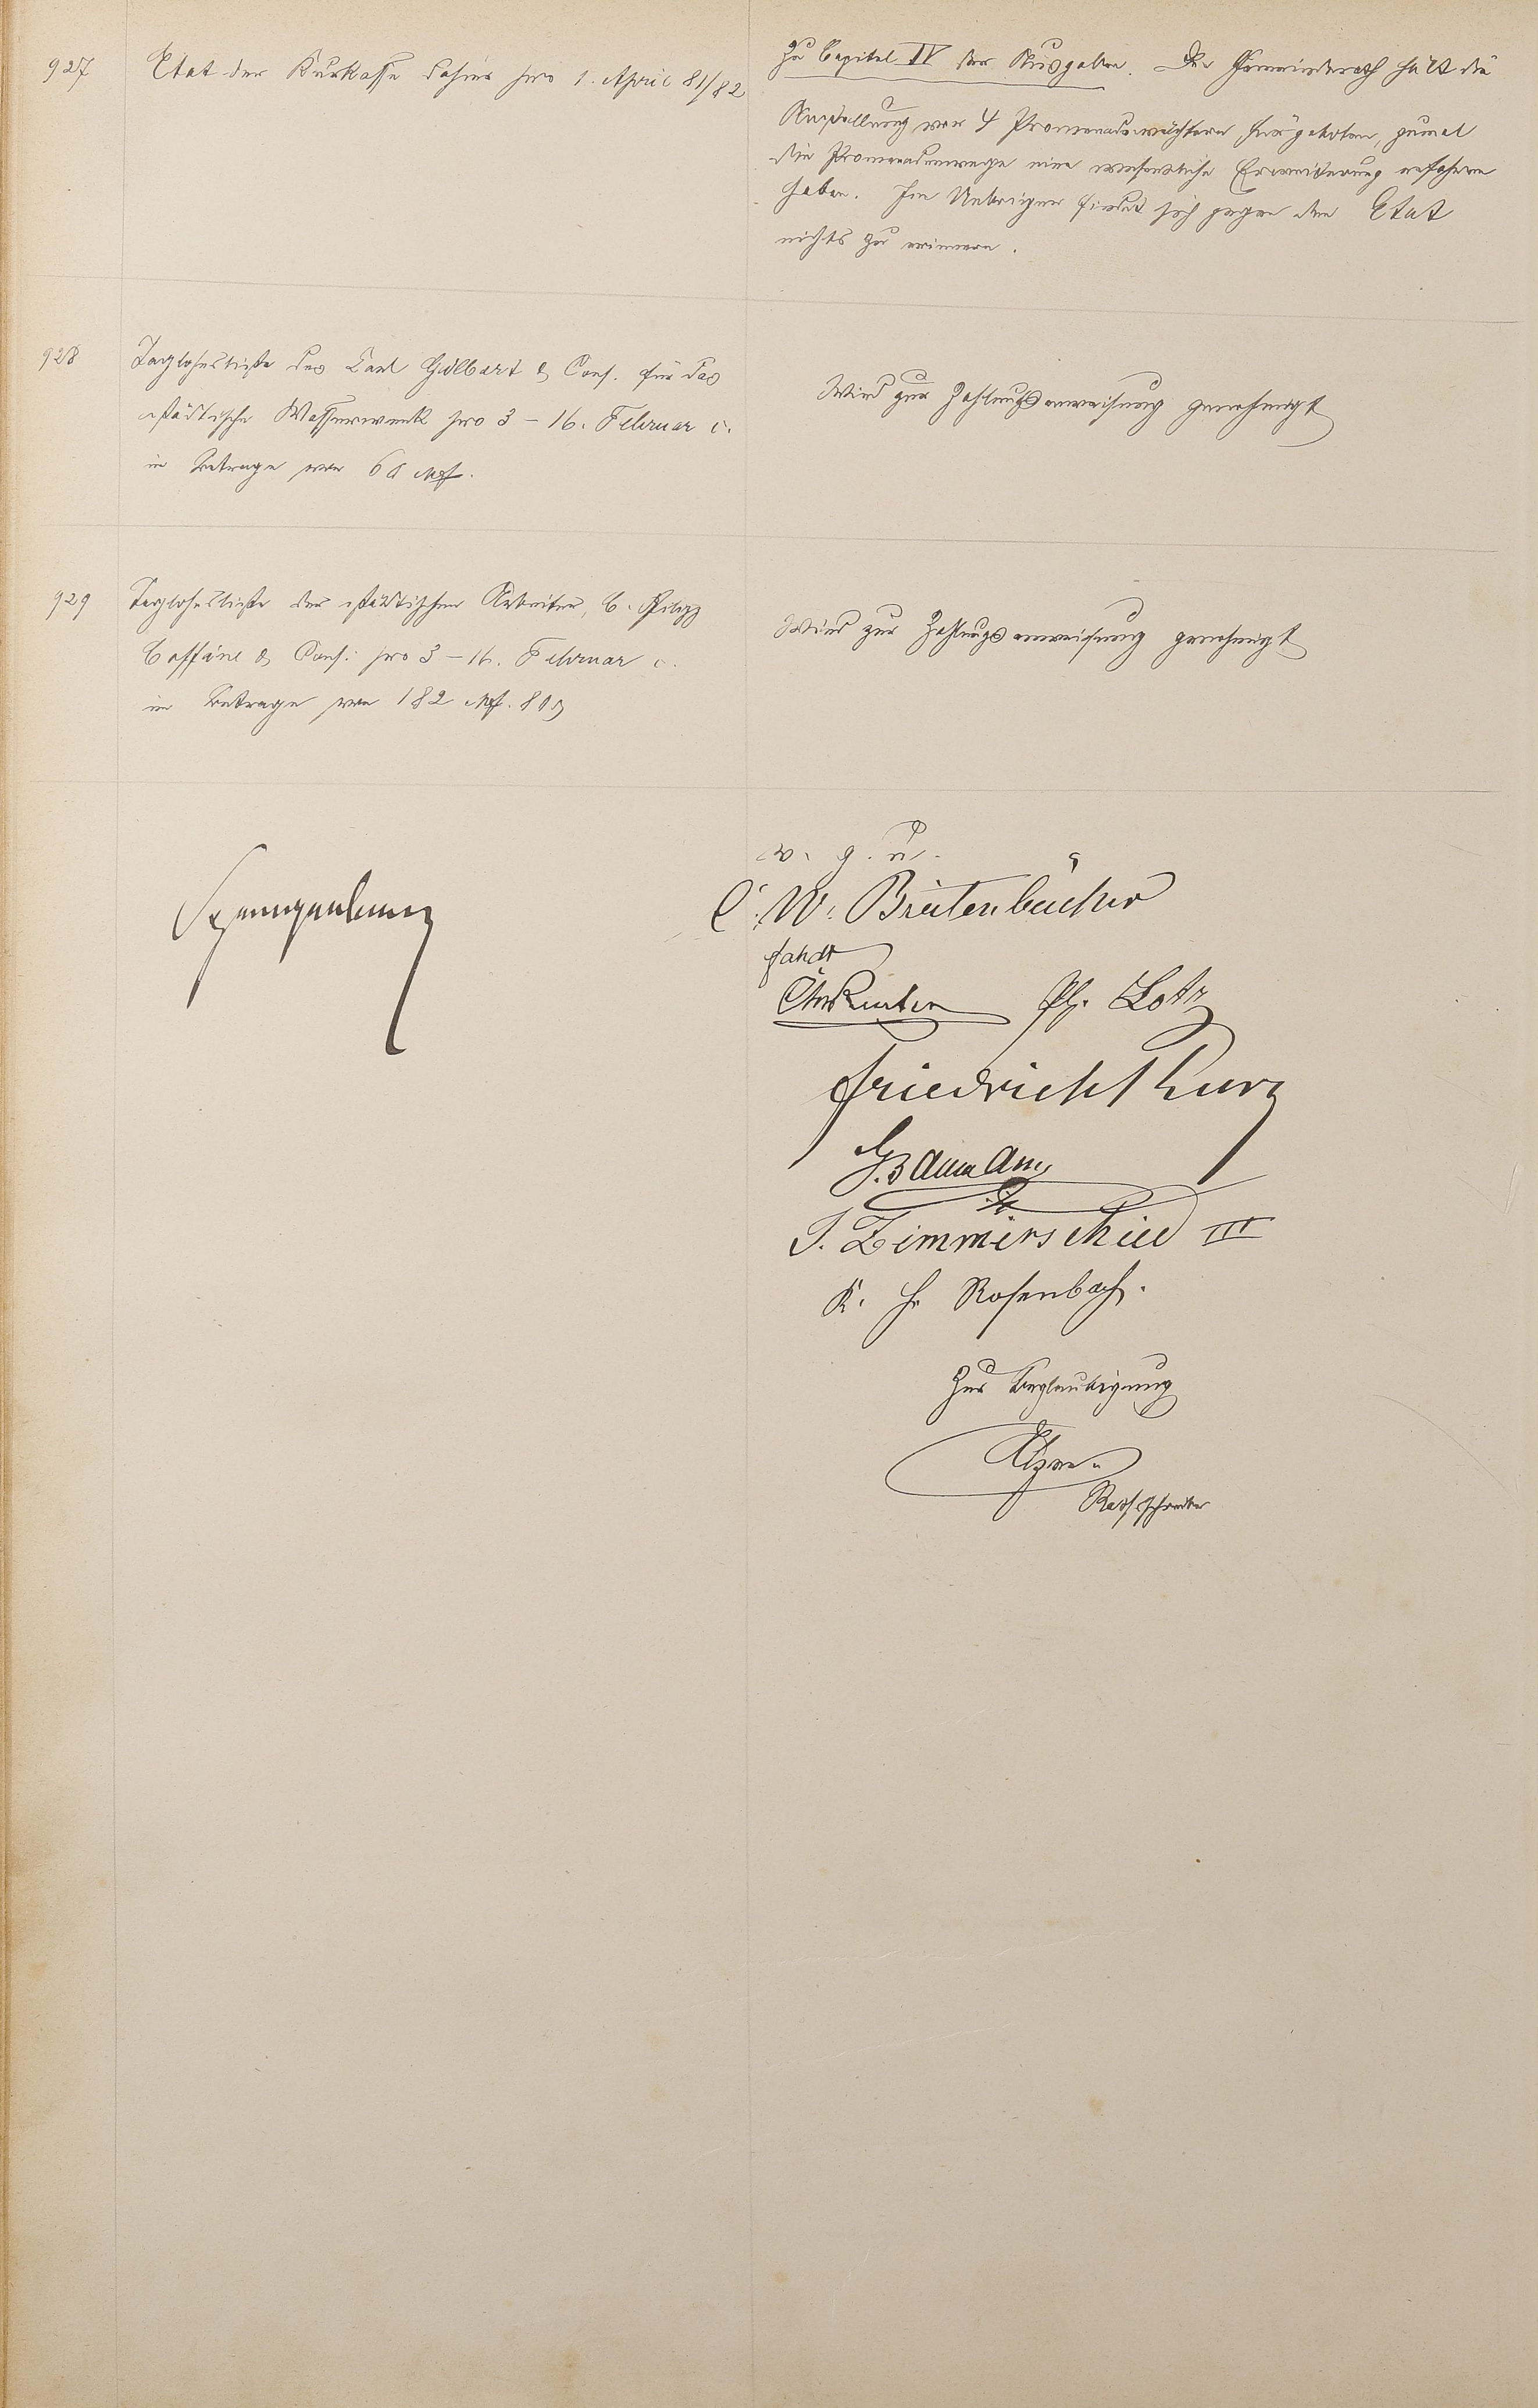 927
Etat der Kurkasse dahier pro 1. April 81/82
Zu Capitel IV der Ausgaben. Der Gemeinderath hält die
Anstellung von 4 Promenadewächtern für geboten, zumal
die Promenadenwege eine wesentliche Erweiterung erfahren
haben. Im Uebrigen findet sich gegen den Etat
nichts zu erinnern.
928
Taglohnsliste des Carl Gilbert & Cons. für das
städtische Wasserwerk pro 3 – 16. Februar c.
im Betrage von 60 Mk.
Wird zur Zahlungsanweisung genehmigt
929
Taglohnsliste der städtischen Arbeiter, C. Philipp
Coffäne & Cons. pro 3 – 16. Februar c.
im Betrage von 182 Mk. 80 ₰
Wird zur Zahlungsanweisung genehmigt
v. g. u.
Spangenberg
C. W. Breitenbücher
Ph. Lotz
Friedrich Kurz
G. Baumann
J. Zimmerschied III
K. H. Rosenbach.
Zur Beglaubigung
Rathsschreiber